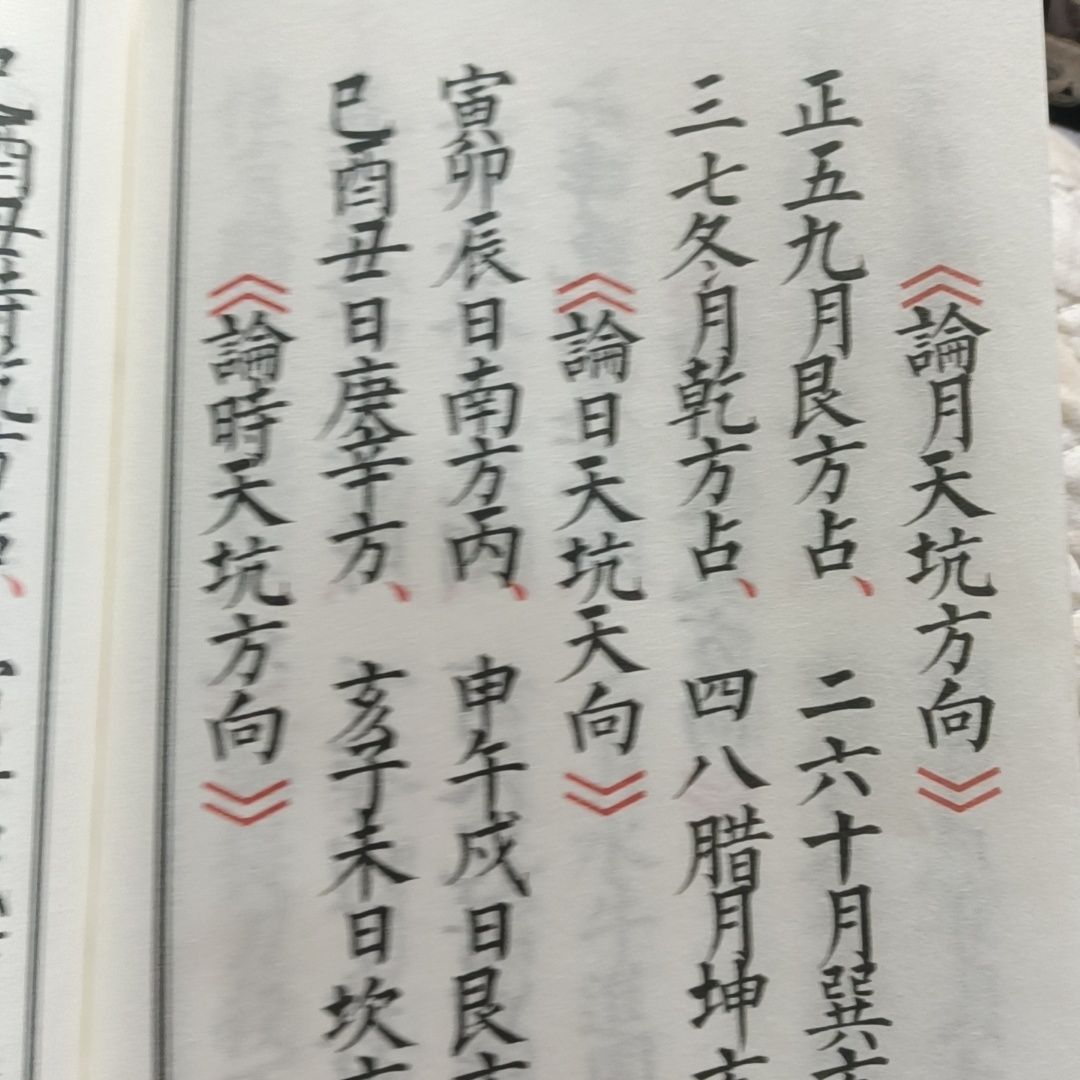 《論月天坑方向》
正五九月艮方占、 二六十月巽方
三七冬月乾方占、 四八腊月坤方
《論日天坑天向》
寅卯辰日南方丙、 申午戍日艮方
巳酉丑日庚辛方、 亥子未日坎方
《論時天坑方向》